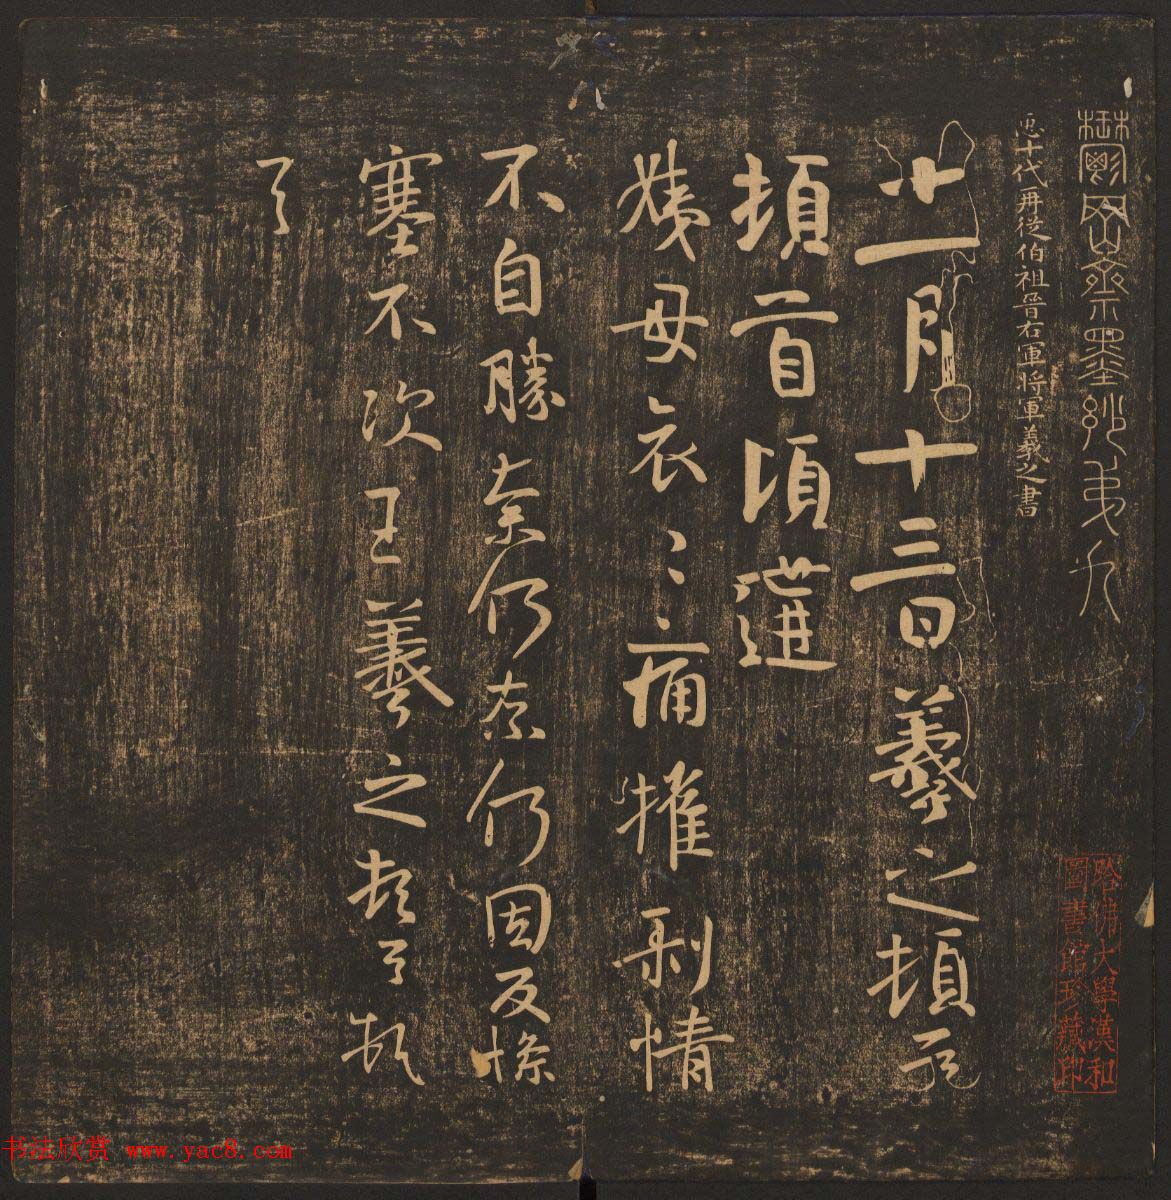 鬱岡齋墨妙第九
臣十代再從伯祖晉右軍將軍羲之書
十一月十三日羲之頓首
頓首頃遘
姨母哀哀痛摧剝情
不自勝奈何奈何因反慘
塞不次王羲之頓首頓
首
哈佛大學漢和
圖書館珍藏印
书法欣赏 www.yac8.com